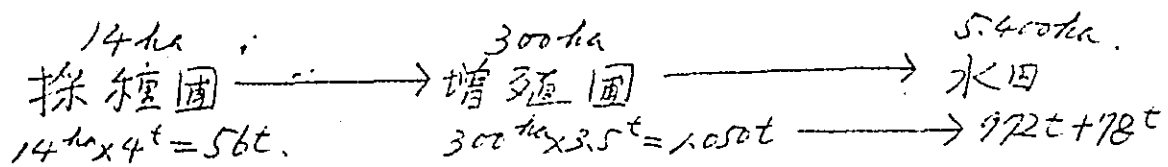 14ha 300ha 5.400ha.
採種圃 → 増殖圃 → 水田
14ha×4t=56t. 300ha×3.5t=1.050t → 972t+78t